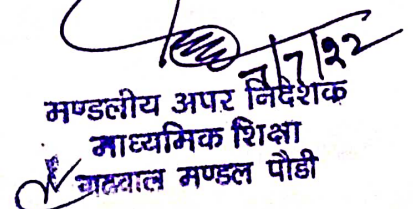 7/7/22
मण्डलीय अपर निदेशक
माध्यमिक शिक्षा
गढ़वाल मण्डल पौडी